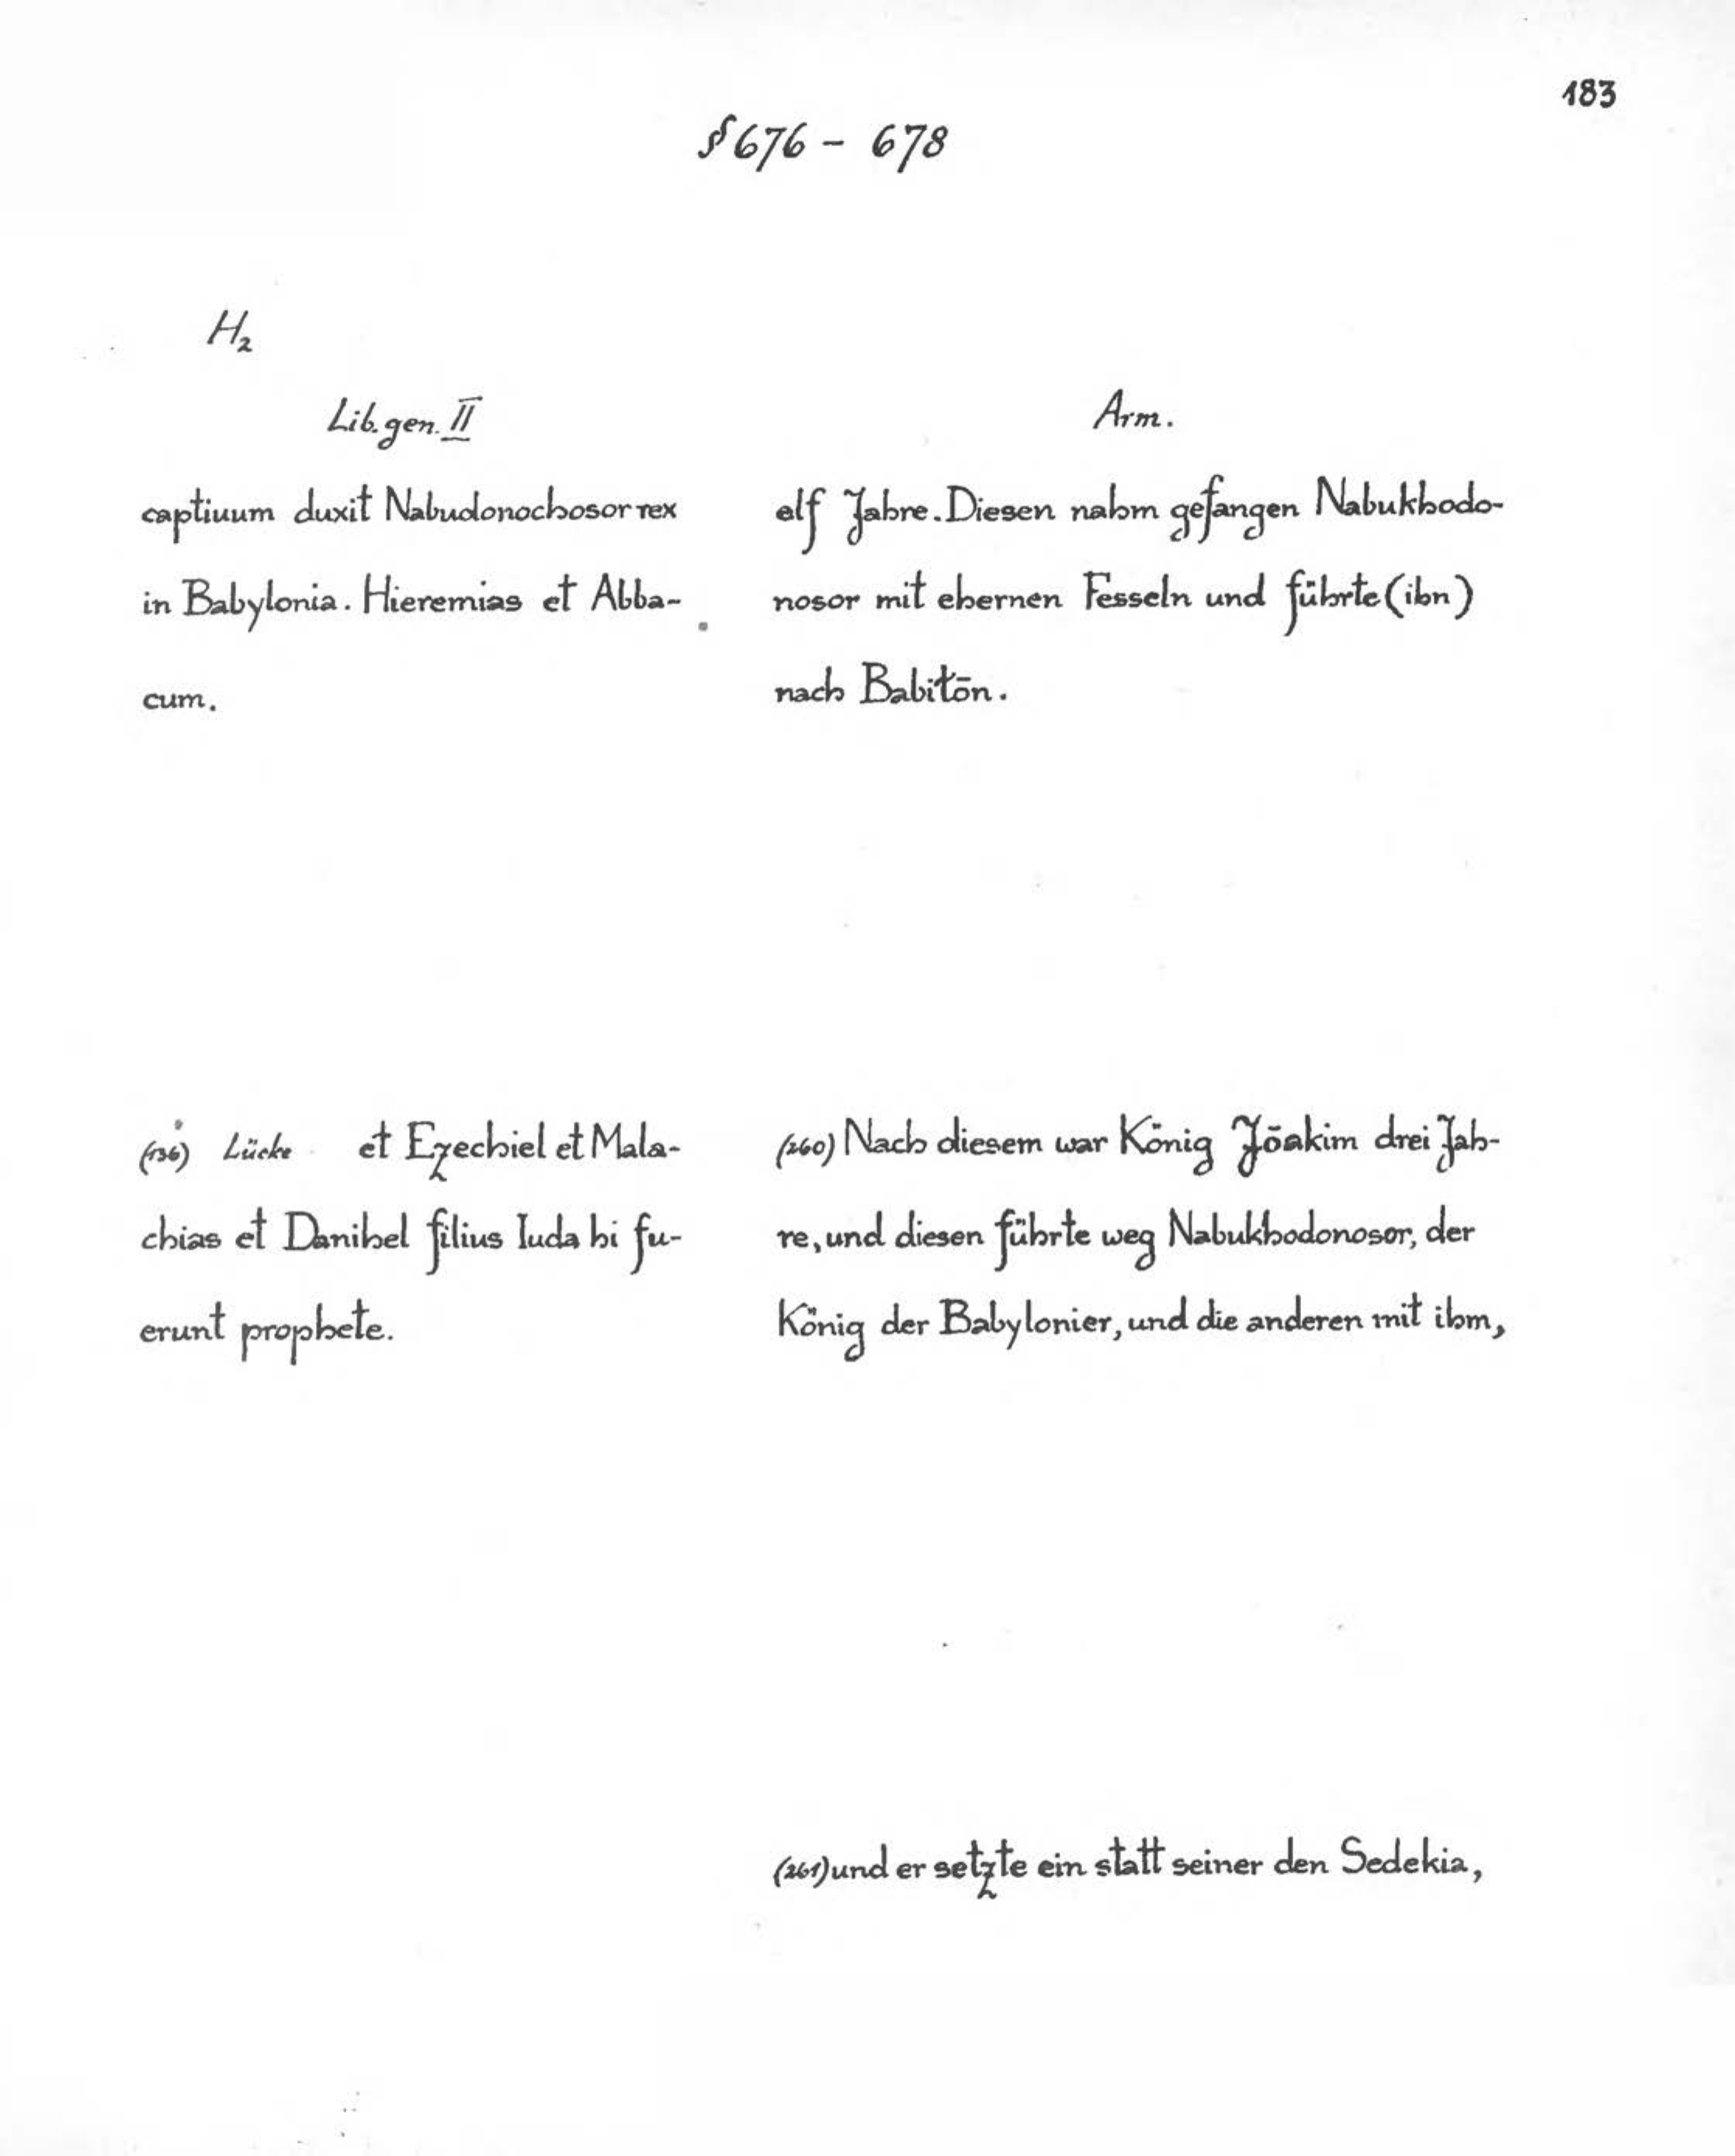 183
§ 676 - 678
H₂
Lib. gen. II
captiuum duxit Nabudonochosor rex
in Babylonia. Hieremias et Abba-
cum.
Arm.
elf Jahre. Diesen nahm gefangen Nabukhodo-
nosor mit ehernen Fesseln und führte (ihn)
nach Babiłōn.
(136) Lücke et Ezechiel et Mala-
chias et Danihel filius Iuda hi fu-
erunt prophete.
(260) Nach diesem war König Jōakim drei Jah-
re, und diesen führte weg Nabukhodonosor, der
König der Babylonier, und die anderen mit ihm,
(261) und er setzte ein statt seiner den Sedekia,